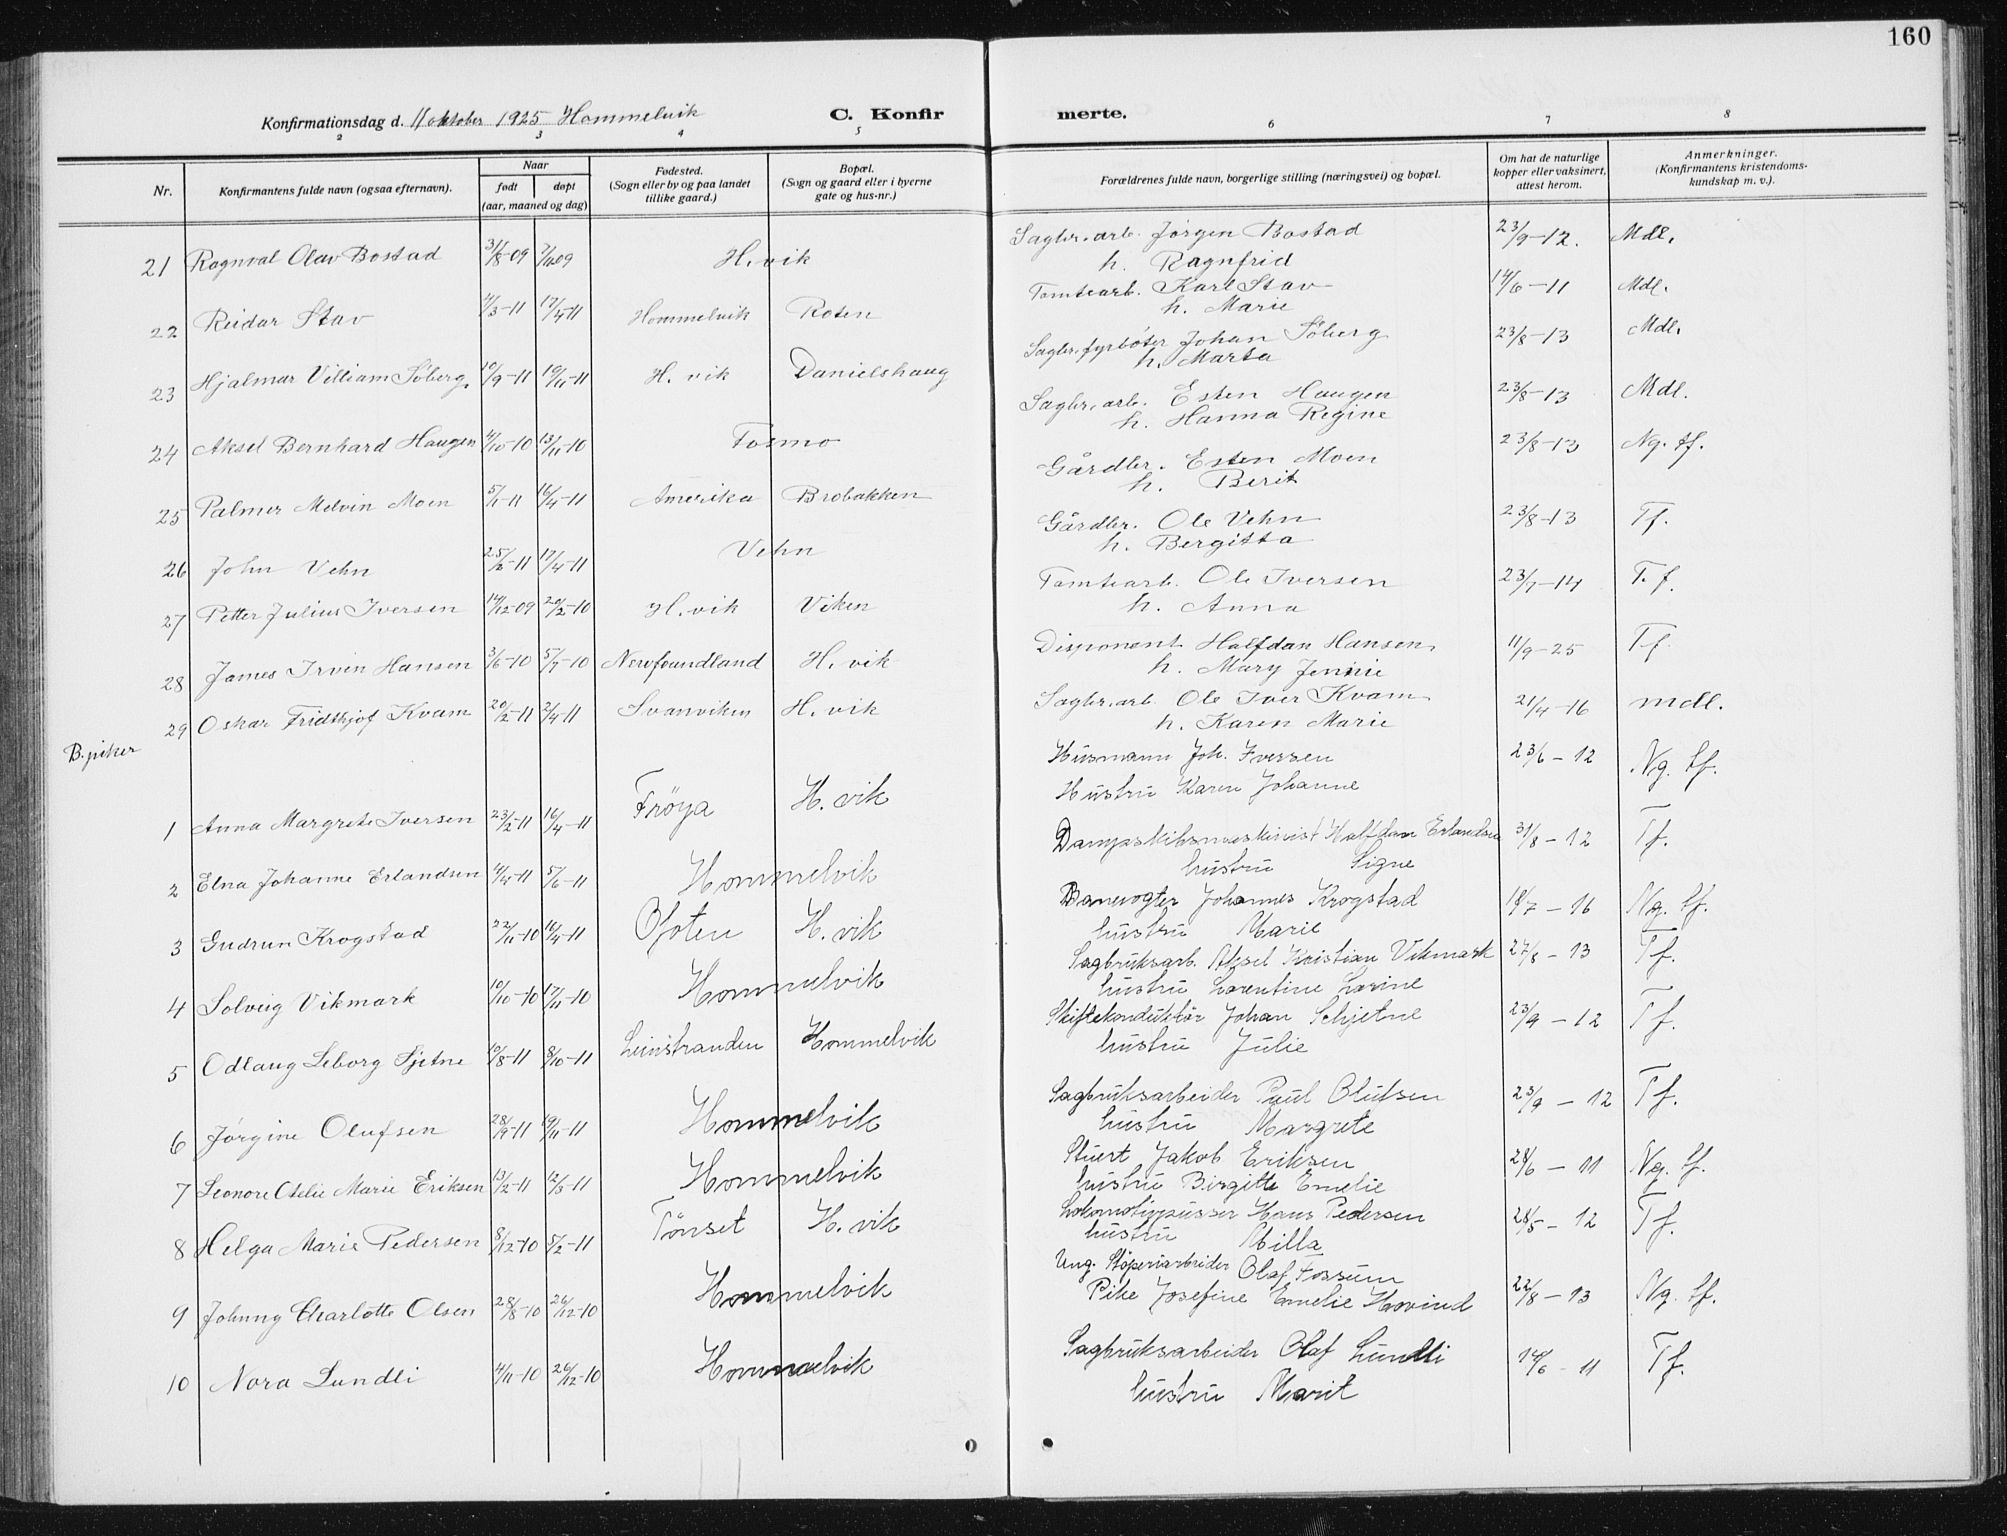 160
Konfirmationsdag d. 11 oktober 1925 Hommelvik C. Konfirmerte.
2 3 4 5 6 7 8
Nr. Konfirmantens fulde navn (ogsaa efternavn). Naar født døpt (aar, maaned og dag) Fødested. (Sogn eller by og paa landet tillike gaard.) Bopæl. (Sogn og gaard eller i byerne gate og hus-nr.) Forældrenes fulde navn, borgerlige stilling (næringsvei) og bopæl. Om hat de naturlige kopper eller vaksinert, attest herom. Anmerkninger. (Konfirmantens kristendomskundskap m. v.).
21 Ragnval Olav Bostad 31/8-09 7/11-09 H. vik Sagbr. arb. Jørgen Bostad 23/9-12. Mdl.
h. Ragnfrid
22 Reidar Stav 4/3-11 17/4-11 Hommelvik Roten Tomtearb. Karl Stav 14/6-11 Mdl.
h. Marie
23 Hjalmar Villiam Söberg. 10/9-11 19/11-11 H. vik Danielshaug Sagbr. fyrböter Johan Söberg 23/8-13 Mdl.
h. Marta
24 Aksel Bernhard Haugen 4/10-10 13/11-10 Tosmo Sagbr. arb. Esten Haugen 23/8-13 Mdl.
h. Hanna Regine
25 Palmer Melvin Moen 5/1-11 16/4-11 Amerika Brobakken Gårdbr. Esten Moen 23/8-13 Ng. tf.
h. Berit
26 John Vehn 25/2-11 17/4-11 Vehn Gårdbr. Ole Vehn 23/8-13 Tf.
h. Bergitta
27 Petter Julius Iversen 14/12-09 20/2-10 H. vik Viken Tomtearb. Ole Iversen 23/7-14 T. f.
h. Anna
28 James Irvin Hansen 3/6-10 5/7-10 Newfoundland H. vik Disponent Halfdan Hansen 11/9-25 Tf.
h. Mary Jennie
29 Oskar Fridthjof Kvam 20/2-11 2/4-11 Svanviken H. vik Sagbr. arb. Ole Iver Kvam 21/4-16 mdl.
h. Karen Marie
B. piker
1 Anna Margrete Iversen 23/2-11 16/4-11 Frøya H. vik Husmann Joh. Iversen 23/6-12 Ng. tf.
Hustru Karen Johanne
2 Elna Johanne Erlandsen 4/4-11 5/6-11 Hommelvik Dampskibsmaskinist Halfdan Erlandsen 31/8-12 Tf.
hustru Signe
3 Gudrun Krogstad 22/11-10 16/4-11 Ofoten H. vik Banevogter Johannes Krogstad 18/7-16 Ng. tf.
hustru Marie
4 Solveig Vikmark 10/10-10 17/11-10 Hommelvik Sagbruksarb. Aksel Kristian Vikmark 27/8-13 Tf.
hustru Laurentine Larine
5 Odlaug Leborg Sjetne 10/8-11 8/10-11 Leinstranden Hommelvik Skiftekonduktör Johan Schjetne 23/9-12 Tf.
hustru Julie
6 Jørgine Olufsen 28/9-11 19/11-11 Hommelvik Sagbruksarbeider Paul Olufsen 23/9-12 Tf.
hustru Margrete
7 Leonore Otelie Marie Eriksen 13/2-11 12/3-11 Hommelvik Stuert Jakob Eriksen 28/6-11 Ng. tf.
hustru Birgitte Emelie
8 Helga Marie Pedersen 8/12-10 5/2-11 Tönset H. vik Lokomotivpusser Hans Pedersen 28/5-12 Tf.
hustru Milla
9 Johnny Charlotte Olsen 28/8-10 26/12-10 Hommelvik Ung. Støperiarbeider Olaf Fossum 22/8-13 Ng. tf.
Pike Josefine Emelie Hovind
10 Nora Lundli 4/11-10 26/12-10 Hommelvik Sagbruksarbeider Olaf Lundli 14/6-11 Tf.
hustru Marit